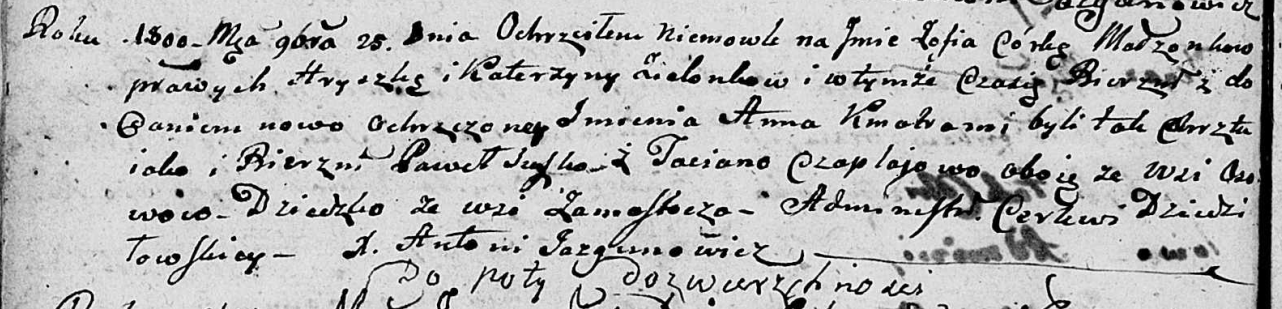 Roku 1800 Mca 9bra 25. Dnia Ochrzciłem Niemowle na Jmie Zofia Córkę Małżonkow
prawych Hryszkę i Katerzyny Zielonkow i w tymże czasie Bierzm z do
daniem nowo ochrzczoney Jmienia Anna Kmotrami byli tak Chrztu
iako i Bierzm Paweł Suszko z Taciano Czaplajowo oboie ze wsi Oso
wowo - Dziecko ze wsi Zamostocza - Administr Cerkwi Dziedzi
łowskiey - X. Antoni Jazgunowicz
Do poty Dozwierzchnosci